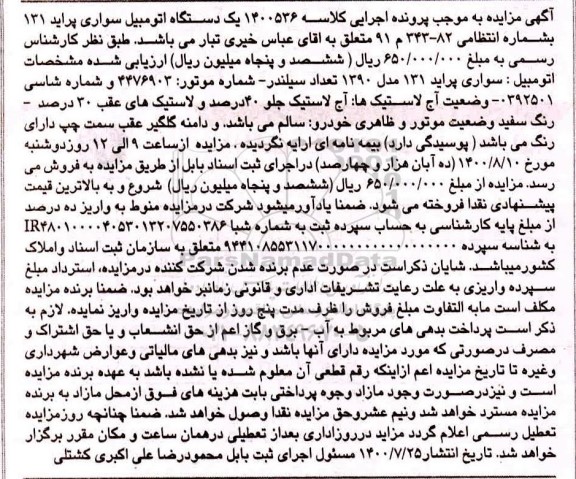 آگهی مزایده به موجب پرونده اجرایی کلاسه ۱۴۰۰۵۳۶ یک دستگاه اتومبیل سواری پراید ۱۳۱
بشماره انتظامی ۸۲-۳۴۳ م ۹۱ متعلق به اقای عباس خیری تبار می باشد. طبق نظر کارشناس
رسمی به مبلغ ۶۵۰/۰۰۰/۰۰۰ ریال ( ششصد و پنجاه میلیون ریال) ارزیابی شده مشخصات
اتومبیل : سواری پراید ۱۳۱ مدل ۱۳۹۰ تعداد سیلندر- شماره موتور: ۴۴۷۶۹۰۳ و شماره شاسی
۰۳۹۲۵۰۱- وضعیت آج لاستیک ها: آج لاستیک جلو ۴۰درصد و لاستیک های عقب ۳۰ درصد -
رنگ سفید وضعیت موتور و ظاهری خودرو: سالم می باشد. و دامنه گلگیر عقب سمت چپ دارای
رنگ می باشد ( پوسیدگی دارد) بیمه نامه ای ارایه نگردیده . مزایده ازساعت ۹ الی ۱۲ روزدوشنبه
مورخ ۱۴۰۰/۸/۱۰ (ده آبان هزار و چهارصد) دراجرای ثبت اسناد بابل از طریق مزایده به فروش می
رسد. مزایده از مبلغ ۶۵۰/۰۰۰/۰۰۰ ریال (ششصد و پنجاه میلیون ریال) شروع و به بالاترین قیمت
پیشنهادی نقدا فروخته می شود. ضمنا یادآورمیشود شرکت درمزایده منوط به واریز ده درصد
از مبلغ پایه کارشناسی به حساب سپرده ثبت به شماره شبا IR۴۸۰۱۰۰۰۰۴۰۵۳۰۱۳۲۰۷۵۵۰۳۸۶
به شناسه سپرده متعلق به سازمان ثبت اسناد واملاک
کشورمیباشد. شایان ذکراست در صورت عدم برنده شدن شرکت کننده درمزایده، استرداد مبلغ
سپرده واریزی به علت رعایت تشریفات اداری و قانونی زمانبر خواهد بود. ضمنا برنده مزایده
مکلف است مابه التفاوت مبلغ فروش را ظرف مدت پنج روز از تاریخ مزایده واریز نمایده. لازم به
ذکر است پرداخت بدهی های مربوط به آب - برق و گاز اعم از حق انشعاب و یا حق اشتراک و
مصرف درصورتی که مورد مزایده دارای آنها باشد و نیز بدهی های مالیاتی وعوارض شهرداری
وغیره تا تاریخ مزایده اعم ازاینکه رقم قطعی آن معلوم شده یا نشده باشد به عهده برنده مزایده
است و نیزدرصورت وجود مازاد وجوه پرداختی بابت هزینه های فوق ازمحل مازاد به برنده
مزایده مسترد خواهد شد ونیم عشروحق مزایده نقدا وصول خواهد شد. ضمنا چنانچه روزمزایده
تعطیل رسمی اعلام گردد مزاید درروزاداری بعداز تعطیلی درهمان ساعت و مکان مقرر برگزار
خواهد شد. تاریخ انتشار۱۴۰۰/۷/۲۵ مسئول اجرای ثبت بابل محمودرضا علی اکبری کشتلی